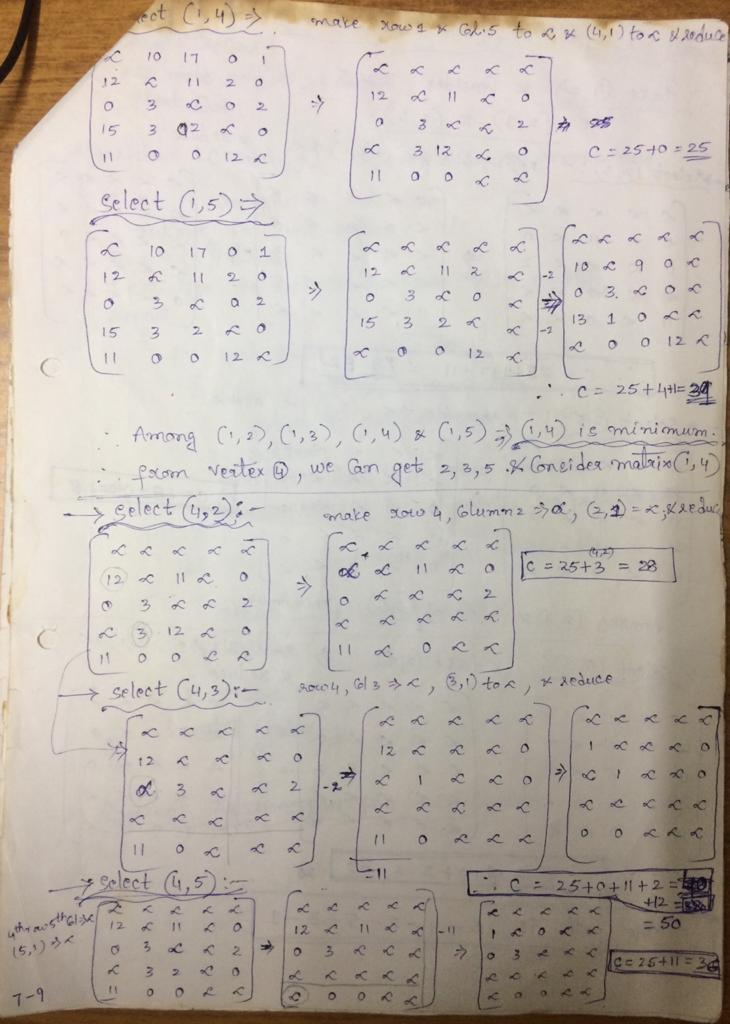 select (1,4) ⇒ make row 1 & Col.5 to ∝ & (4,1) to ∝ & reduce
∝ 10 17 0 1
12 ∝ 11 2 0
0 3 ∝ 0 2
15 3 12 ∝ 0
11 0 0 12 ∝
⇒
∝ ∝ ∝ ∝ ∝
12 ∝ 11 ∝ 0
0 3 ∝ ∝ 2
∝ 3 12 ∝ 0
11 0 0 ∝ ∝
⇒ 25
C = 25+0 = 25
select (1,5) ⇒
∝ 10 17 0 1
12 ∝ 11 2 0
0 3 ∝ 0 2
15 3 2 ∝ 0
11 0 0 12 ∝
⇒
∝ ∝ ∝ ∝ ∝
12 ∝ 11 2 ∝ -2
0 3 ∝ 0 ∝
15 3 2 ∝ ∝ -2
∝ 0 0 12 ∝
⇒
∝ ∝ ∝ ∝ ∝
10 ∝ 9 0 ∝
0 3 ∝ 0 ∝
13 1 0 ∝ ∝
∝ 0 0 12 ∝
∴ C = 25+4+1=31
∴ Among (1,2), (1,3), (1,4) & (1,5) ⇒ (1,4) is minimum.
∴ from vertex 4, we can get 2,3,5. & Consider matrix (1,4)
→ select (4,2):- make row 4, Column 2 ⇒ ∝, (2,1) = ∝, & reduc
∝ ∝ ∝ ∝ ∝
12 ∝ 11 ∝ 0
0 3 ∝ ∝ 2
∝ 3 12 ∝ 0
11 0 0 ∝ ∝
⇒
∝ ∝ ∝ ∝ ∝
∝ ∝ 11 ∝ 0
0 ∝ ∝ ∝ 2
∝ ∝ ∝ ∝ ∝
11 ∝ 0 ∝ ∝
(4,2)
C = 25+3 = 28
→ select (4,3):- row 4, Col 3 ⇒ ∝, (3,1) to ∝, & reduce
∝ ∝ ∝ ∝ ∝
12 ∝ ∝ ∝ 0
∝ 3 ∝ ∝ 2 -2
∝ ∝ ∝ ∝ ∝
11 0 ∝ ∝ ∝
⇒
∝ ∝ ∝ ∝ ∝
12 ∝ ∝ ∝ 0
∝ 1 ∝ ∝ 0
∝ ∝ ∝ ∝ ∝
11 0 ∝ ∝ ∝
-11
⇒
∝ ∝ ∝ ∝ ∝
1 ∝ ∝ ∝ 0
∝ 1 ∝ ∝ 0
∝ ∝ ∝ ∝ ∝
0 0 ∝ ∝ ∝
∴ C = 25+0+11+2 =
+12 =
= 50
→ select (4,5):-
4th row 5th Col ⇒ ∝
(5,1) ⇒ ∝
∝ ∝ ∝ ∝ ∝
12 ∝ 11 ∝ 0
0 3 ∝ ∝ 2
∝ 3 2 ∝ 0
11 0 0 ∝ ∝
⇒
∝ ∝ ∝ ∝ ∝
12 ∝ 11 ∝ ∝ -11
0 3 ∝ ∝ ∝
∝ ∝ ∝ ∝ ∝
∝ 0 0 ∝ ∝
⇒
∝ ∝ ∝ ∝ ∝
1 ∝ 0 ∝ ∝
0 3 ∝ ∝ ∝
∝ ∝ ∝ ∝ ∝
∝ 0 0 ∝ ∝
C = 25+11 = 36
7-9